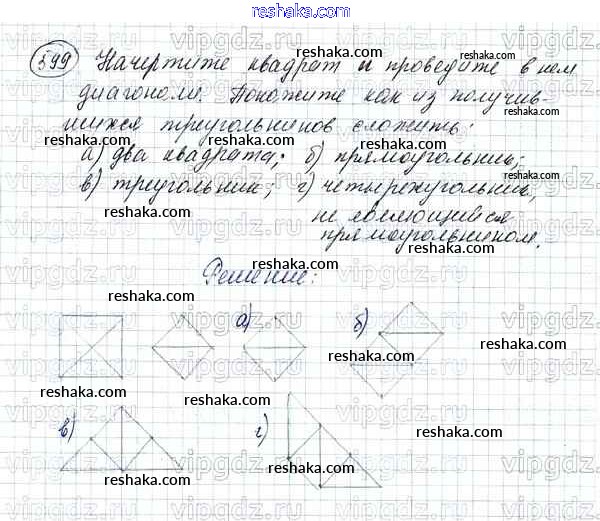 reshaka.com
599 Начертите квадрат и проведите в нем
диагонали. Покажите как из получив-
шихся треугольников сложить:
а) два квадрата; б) прямоугольник;
в) треугольник; г) четырехугольник,
не являющийся
прямоугольником.
Решение:
а) б)
в) г)